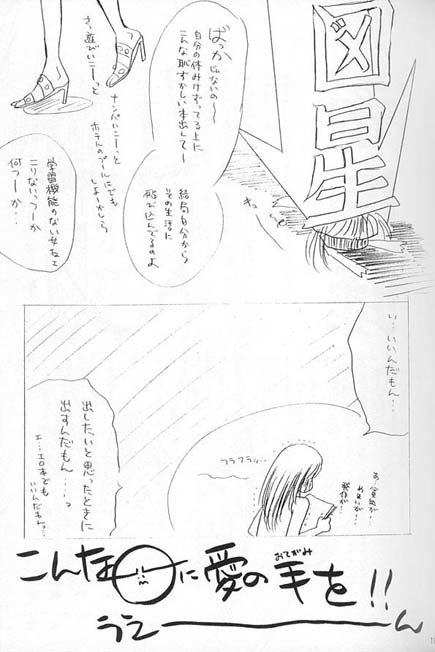 図星
キュ〜
ばっかじゃないの〜
自分の休みけずってる上に
こんな恥ずかしい本出して〜
結局自分から
その生活に
飛び込んでるのよ
さっ遊びいこーっと
ナンパいこーっと
ホテルのプールにでも
しよーかしら
学習機能のない女ねェ
こりないっつーか
何つーか…
い…いいんだもん…
あ、貧血が
めまいが…
発作が…!
フラフラッ…
出したいと思ったときに
出すんだもん…っ
エ…エロ本でも
いいんだもんっ
こんな に愛の手を!!
おてがみ
うえーーん